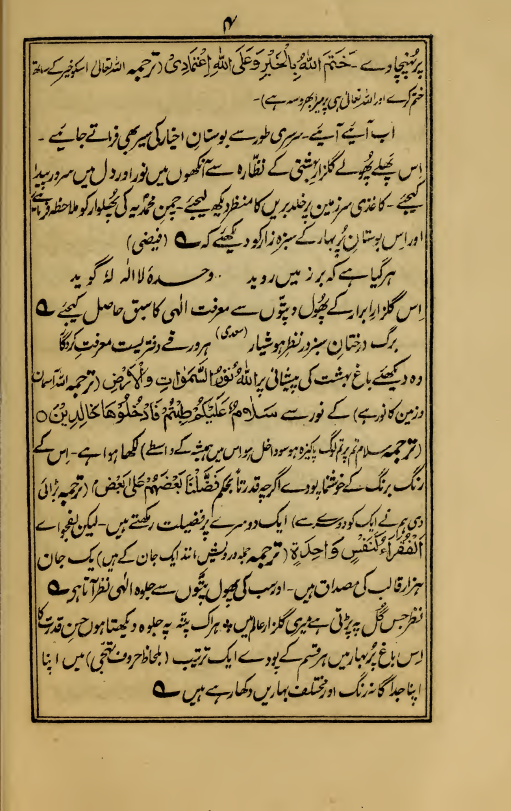 ۴
پر پہنچاوے - خَتَمَ اللّٰهُ بِالْخَيْرِ وَعَلَى اللّٰهِ اِعْتِمَادِىْ (ترجمہ اللہ تعالیٰ اسکو خیر کے ساتھ
ختم کرے اور اللہ تعالیٰ ہی پر میرا بھروسہ ہے) -
اب آیئے آیئے - سرسری طور سے بوستانِ اخیار کی سیر بھی فرماتے جایئے -
اِس پھلے پھُولے گلزارِ بہشتی کے نظارہ سے آنکھوں میں نور اور دل میں سرور پیدا
کیجئے - کاغذی سرزمین پر خلدِ بریں کا منظر دیکھ لیجئے - چمنِ محمدیہ کی پھلوار کو ملاحظہ فرمایئے
اور اِس بوستانِ پُر بہار کے سبزہ زار کو دیکھئے کہ ؎ (فیضی)
ہر گیاہے کہ بر زمیں روید وحدہٗ لا الٰہ لہٗ گوید
اِس گلزارِ ابرار کے پھُول و پتّوں سے معرفت الٰہی کا سبق حاصل کیجئے ؎
برگ درختانِ سبز در نظر ہوشیار (سعدی) ہر ورقے دفتریست معرفتِ کردگار
وہ دیکھئے باغِ بہشت کی پیشانی پر اَللّٰهُ نُوْرُ السَّمٰوَاتِ وَالْاَرْضِ (ترجمہ اللہ آسمان
و زمین کا نور ہے) کے نور سے سَلَامٌ عَلَيْكُمْ طِبْتُمْ فَادْخُلُوْهَا خَالِدِيْنَ ○
(ترجمہ سلام تم پر تم لوگ پاکیزہ ہو سو داخل ہو اس میں ہمیشہ کے واسطے) لکھا ہوا ہے - اِس کے
رنگ برنگ کے خوشنما پودے اگرچہ قدرتاً بحکم فَضَّلْنَا بَعْضَهُمْ عَلٰى بَعْضٍ (ترجمہ بڑائی
دی ہم نے ایک کو دوسرے سے) ایک دوسرے پر فضیلت رکھتے ہیں - لیکن بفحوائے
اَلْفُقَرَاءُ كَنَفْسٍ وَاحِدَةٍ (ترجمہ جملہ درویش مانند ایک جان کے ہیں) یک جان
ہزار قالب کی مصداق ہیں - اور سب کی پھول پتّیوں سے جلوہ الٰہی نظر آتا ہے ؎
نظر جس گُل پہ پڑتی ہے میری گلزارِ عالم میں ٭ ہر اک پتّہ پہ جلوہ دیکھتا ہوں حسنِ قدرت کا
اِس باغِ پُر بہار میں ہر قسم کے پودے ایک ترتیب (بلحاظ حروف تہجی) میں اپنا
اپنا جداگانہ رنگ اور مختلف بہاریں دکھا رہے ہیں ؎